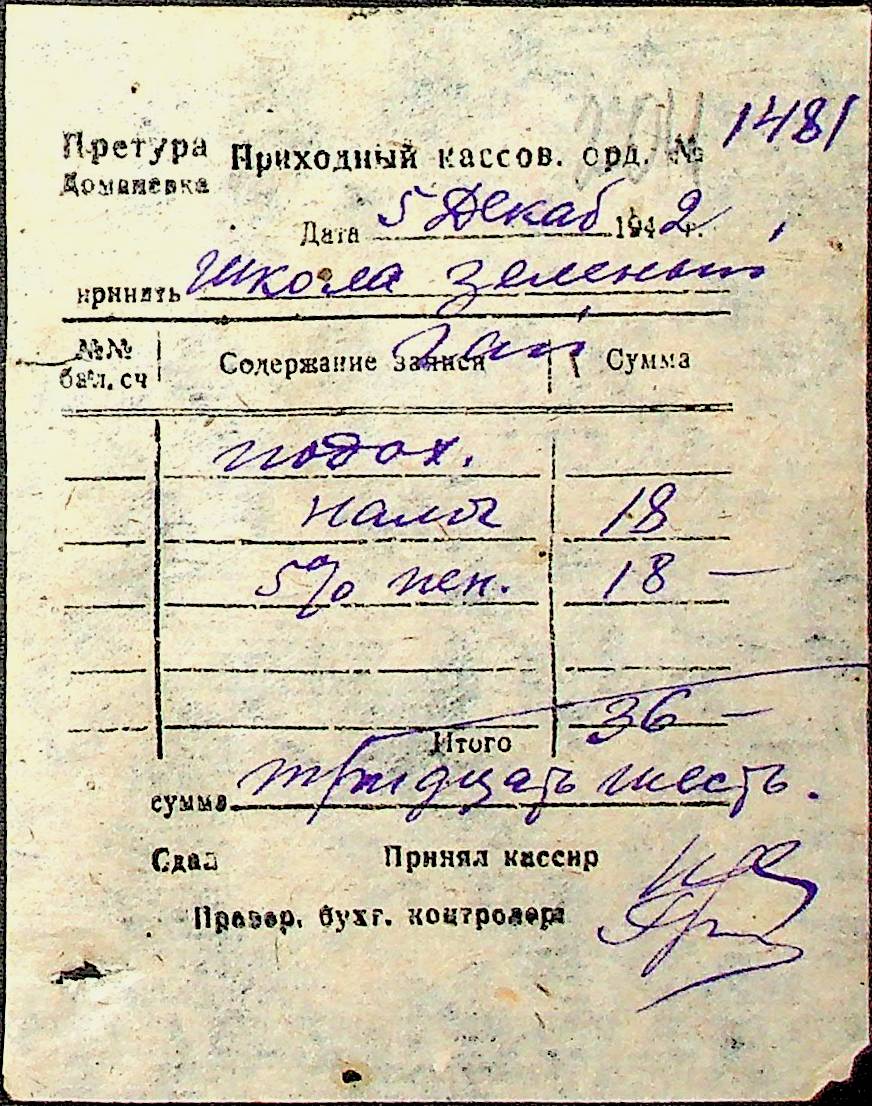 Претура Приходный кассов. орд. № 1481
Доманевка
Дата 5 Декаб 1942 г.
принять Школа Зеленый
Гай
№№ бал. сч Содержание записи Сумма
подох.
налог 18
5% пен. 18 —
Итого 36 —
сумма тридцать шесть.
Сдал Принял кассир
Провер. бухг. контролера